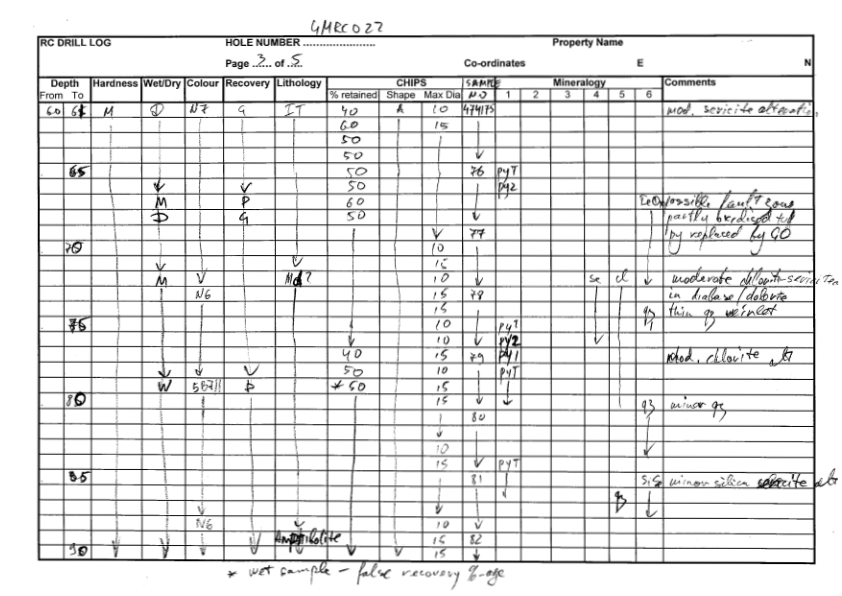 GMRC027
RC DRILL LOG HOLE NUMBER ........................ Property Name
Page ..3.. of ..5.. Co-ordinates E N
Depth Hardness Wet/Dry Colour Recovery Lithology CHIPS SAMPLE Mineralogy Comments
From To % retained Shape Max Dia NO 1 2 3 4 5 6
60 61 M D N7 G IT 40 A 10 474175 mod. sericite alteration
60 15
50
50
65 50 76 pyT
50 py2
M P 60 possible fault zone
D G 50 partly
77 py replaced by GO
70 10
15
M Md? 10 se cl moderate
N6 15 78 in diabase/dolorite
15 qz thin qz veinlet
75 10 py1
10 py2
40 15 79 py1 Mod. chlorite alt
50 10 pyT
W P * 50 15
80 15 q3 minor qz
80
10
15 pyT
85 81 minor silica sericite alt
N6 10
Amphibolite 15 82
90 15
* wet sample - false recovery %-age